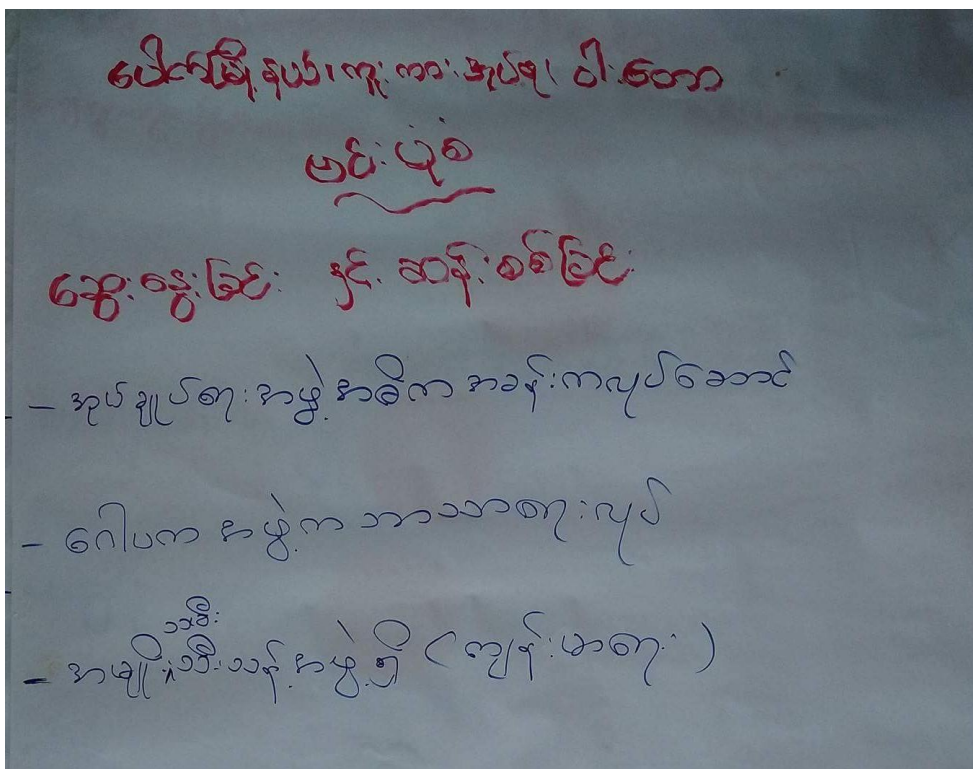 ပေါက်မြို့နယ်၊ ကူကား အုပ်စု၊ ဝါးတော
ဗင်းပုံစံ
ဆွေးနွေးခြင်း နှင့် ဆန်းစစ်ခြင်း
- အုပ်ချုပ်ရေးအဖွဲ့အဓိက အခန်းကလုပ်ဆောင်
- ဂေါပကအဖွဲ့က ဘာသာရေးလုပ်
သမီး
- အမျိုးသမီးသန့်အဖွဲ့ရှိ (ကျန်းမာရေး)